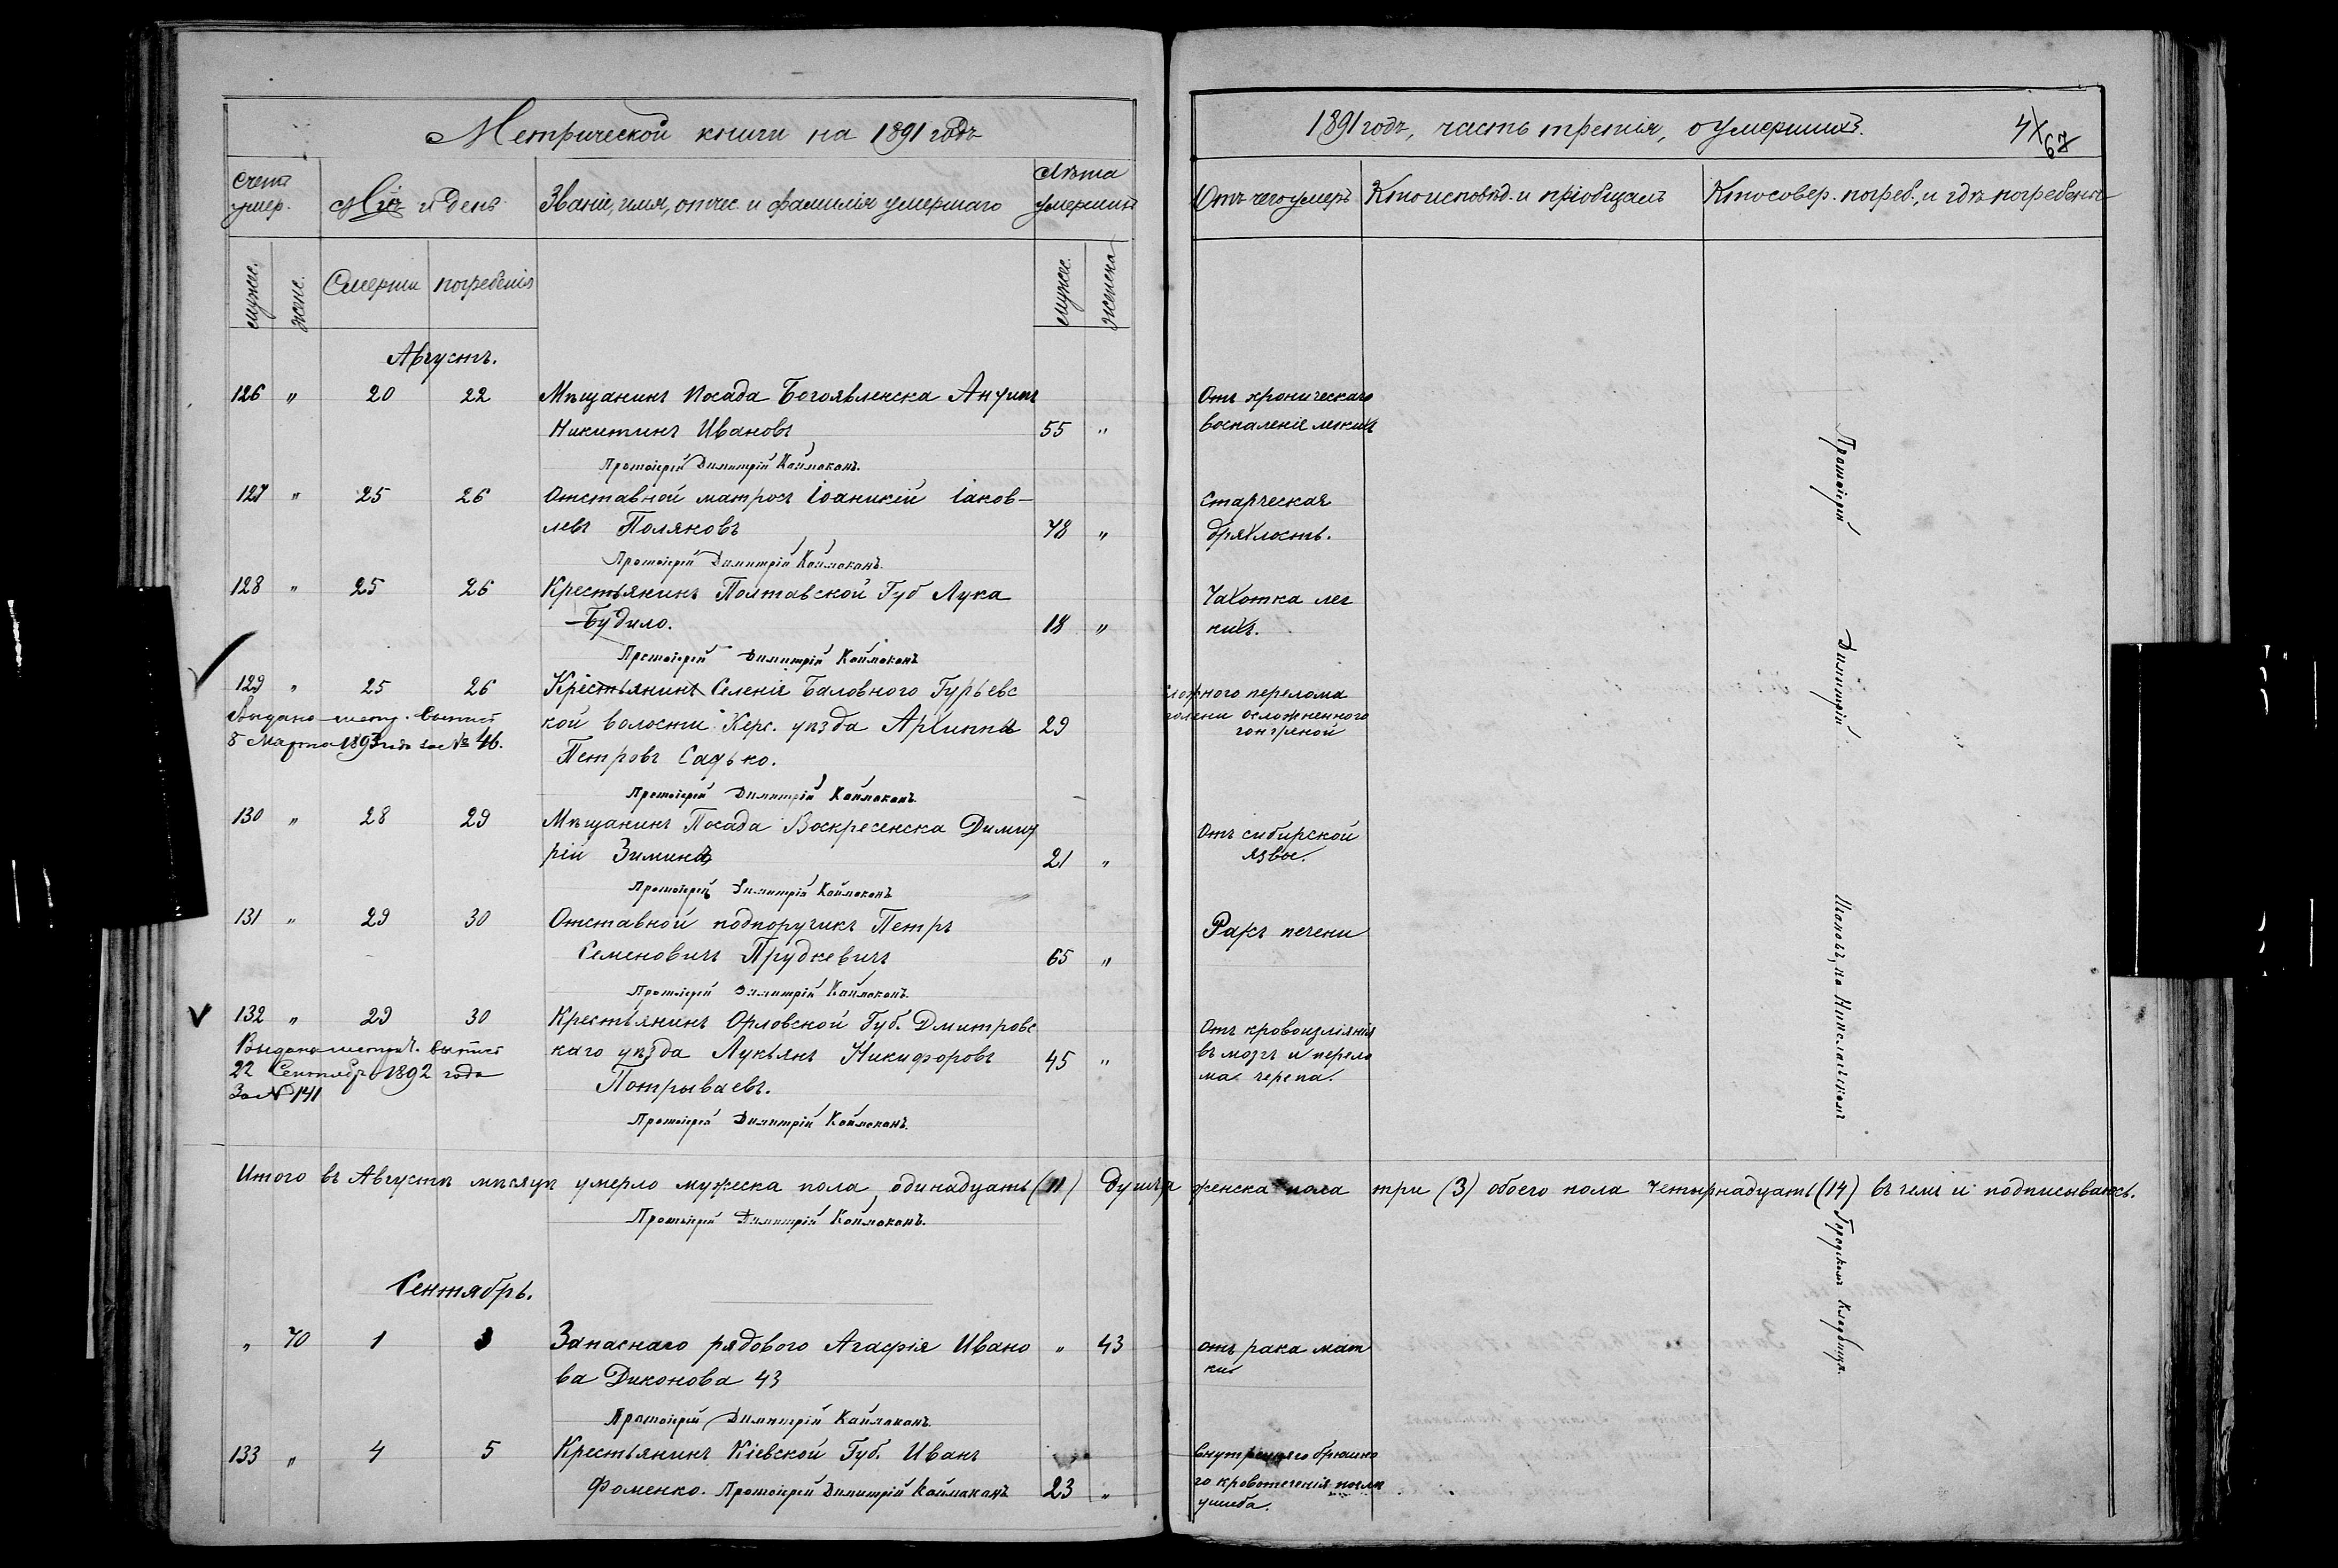 Метрической книги на 1891 годъ
1891 годъ, часть третія, о умершихъ.
67
Счетъ умер.
Мѣс. и день
Званіе, имя, отчес. и фамилія умершаго
Лѣта умершихъ
Отъ чего умеръ
Кто исповѣд. и пріобщалъ
Кто совер. погреб., и гдѣ погребенъ
мужес.
женс.
Смерти
погребенія
мужес.
женска
Августъ.
126 " 20 22 Мѣщанинъ Посада Богоявленска
Никитинъ Ивановъ 55 "
Отъ хроническаго
воспаленіе легкихъ
Протоіерей Димитрій Каймаканъ.
127 " 25 26 Отставной матросъ Іоаникій Іаков-
левъ Поляковъ 78 "
Старческая
дряхлость.
Протоіерей Димитрій Каймаканъ.
128 " 25 26 Крестьянинъ Полтавской Губ Лука
Будило. 18 "
Чахотка лег
кихъ.
Протоіерей Димитрій Каймаканъ
129 " 25 26 Крестьянинъ Селенія Баловного Гурьевс
кой волости Херс. уѣзда Архиппъ 29
Петровъ Садько.
Выдано метр. выпись
8 Марта 1893 года за № 46.
сложного перелома
голени осложненного
гонгреной
Протоіерей Димитрій Каймаканъ.
130 " 28 29 Мѣщанинъ Посада Воскресенска Димит
рій Зиминъ 21 "
Отъ сибирской
язвы.
Протоіерей Димитрій Каймаканъ
131 " 29 30 Отставной подпоручикъ Петръ
Семеновичъ Прудкевичъ 65 "
Ракъ печени
Протоіерей Димитрій Каймаканъ.
132 " 29 30 Крестьянинъ Орловской Губ. Дмитровс
каго уѣзда Лукьянъ Никифоровъ 45 "
Потрываевъ.
Выдана метрич. выпись
22 Сентября 1892 года
За № 141
Отъ кровоизліянія
въ мозгъ и перело
ма черепа.
Протоіерей Димитрій Каймаканъ.
Итого въ Августѣ мѣсяцѣ умерло мужеска пола одинадцать (11) душъ женска пола три (3) обоего пола четырнадцать (14) въ чемъ и подписываюсь.
Протоіерей Димитрій Каймаканъ.
Сентябрь.
" 70 1 3 Запаснаго рядового Агафія Ивано " 43
ва Диконова 43
отъ рака мат
ки
Протоіерей Димитрій Каймаканъ.
133 " 4 5 Крестьянинъ Кіевской Губ. Иванъ
Фоменко. Протоіерей Димитрій Каймаканъ 23 "
внутренняго брюшно
го кровотеченія послѣ
ушиба.
Протоіерей Димитрій на Николаевскомъ Городскомъ кладбищѣ.